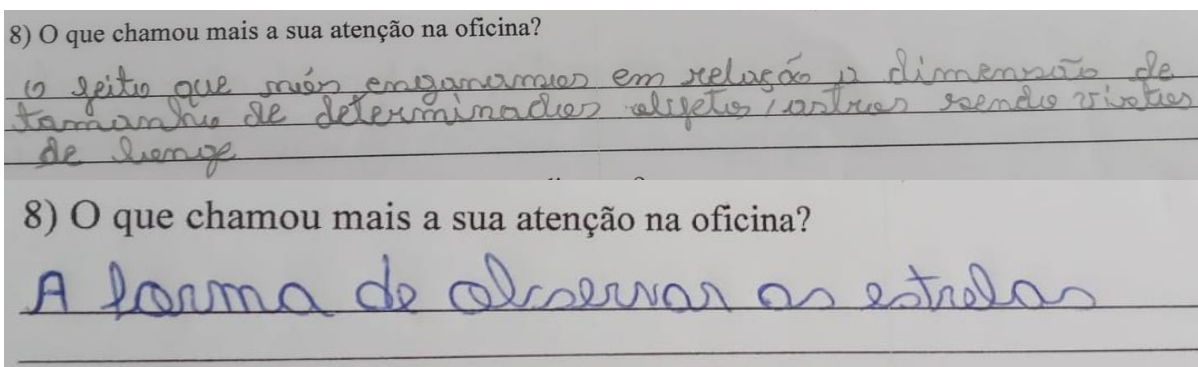 8) O que chamou mais a sua atenção na oficina?
o jeito que nós enganarmos em relação a dimensão de
tamanho de determinados objetos / astros sendo vistos
de longe
8) O que chamou mais a sua atenção na oficina?
A forma de observar as estrelas